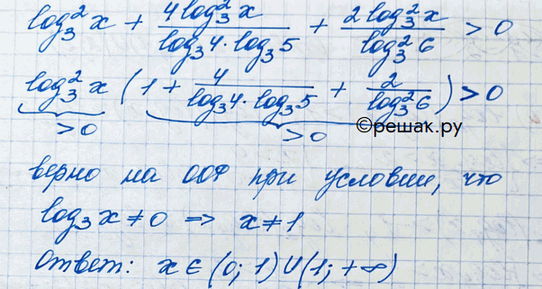 log₃²x + 4log₃²x / (log₃4·log₃5) + 2log₃²x / log₃²6 > 0
log₃²x (1 + 4 / (log₃4·log₃5) + 2 / log₃²6) > 0
>0 >0
©решак.ру
верно на ООФ при условии, что
log₃x ≠ 0 => x ≠ 1
Ответ: x ∈ (0; 1) ∪ (1; +∞)